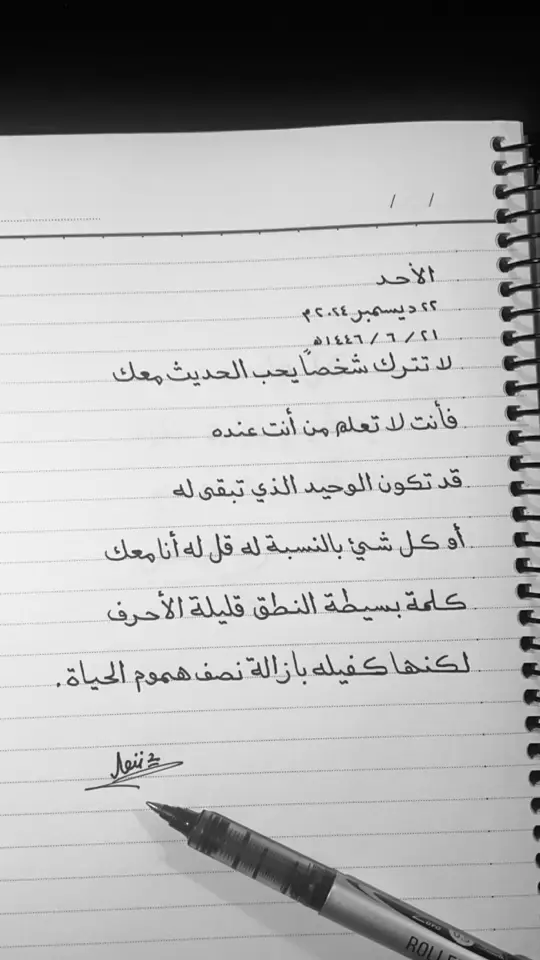 / /
الأحد
٢٢ ديسمبر ٢٠٢٤م
٢١ / ٦ / ١٤٤٦ه
لا تترك شخصاً يحب الحديث معك
فأنت لا تعلم من أنت عنده
قد تكون الوحيد الذي تبقى له
أو كل شيئ بالنسبة له قل له أنا معك
كلمة بسيطة النطق قليلة الأحرف
لكنها كفيله بازالة نصف هموم الحياة .
ROLLE